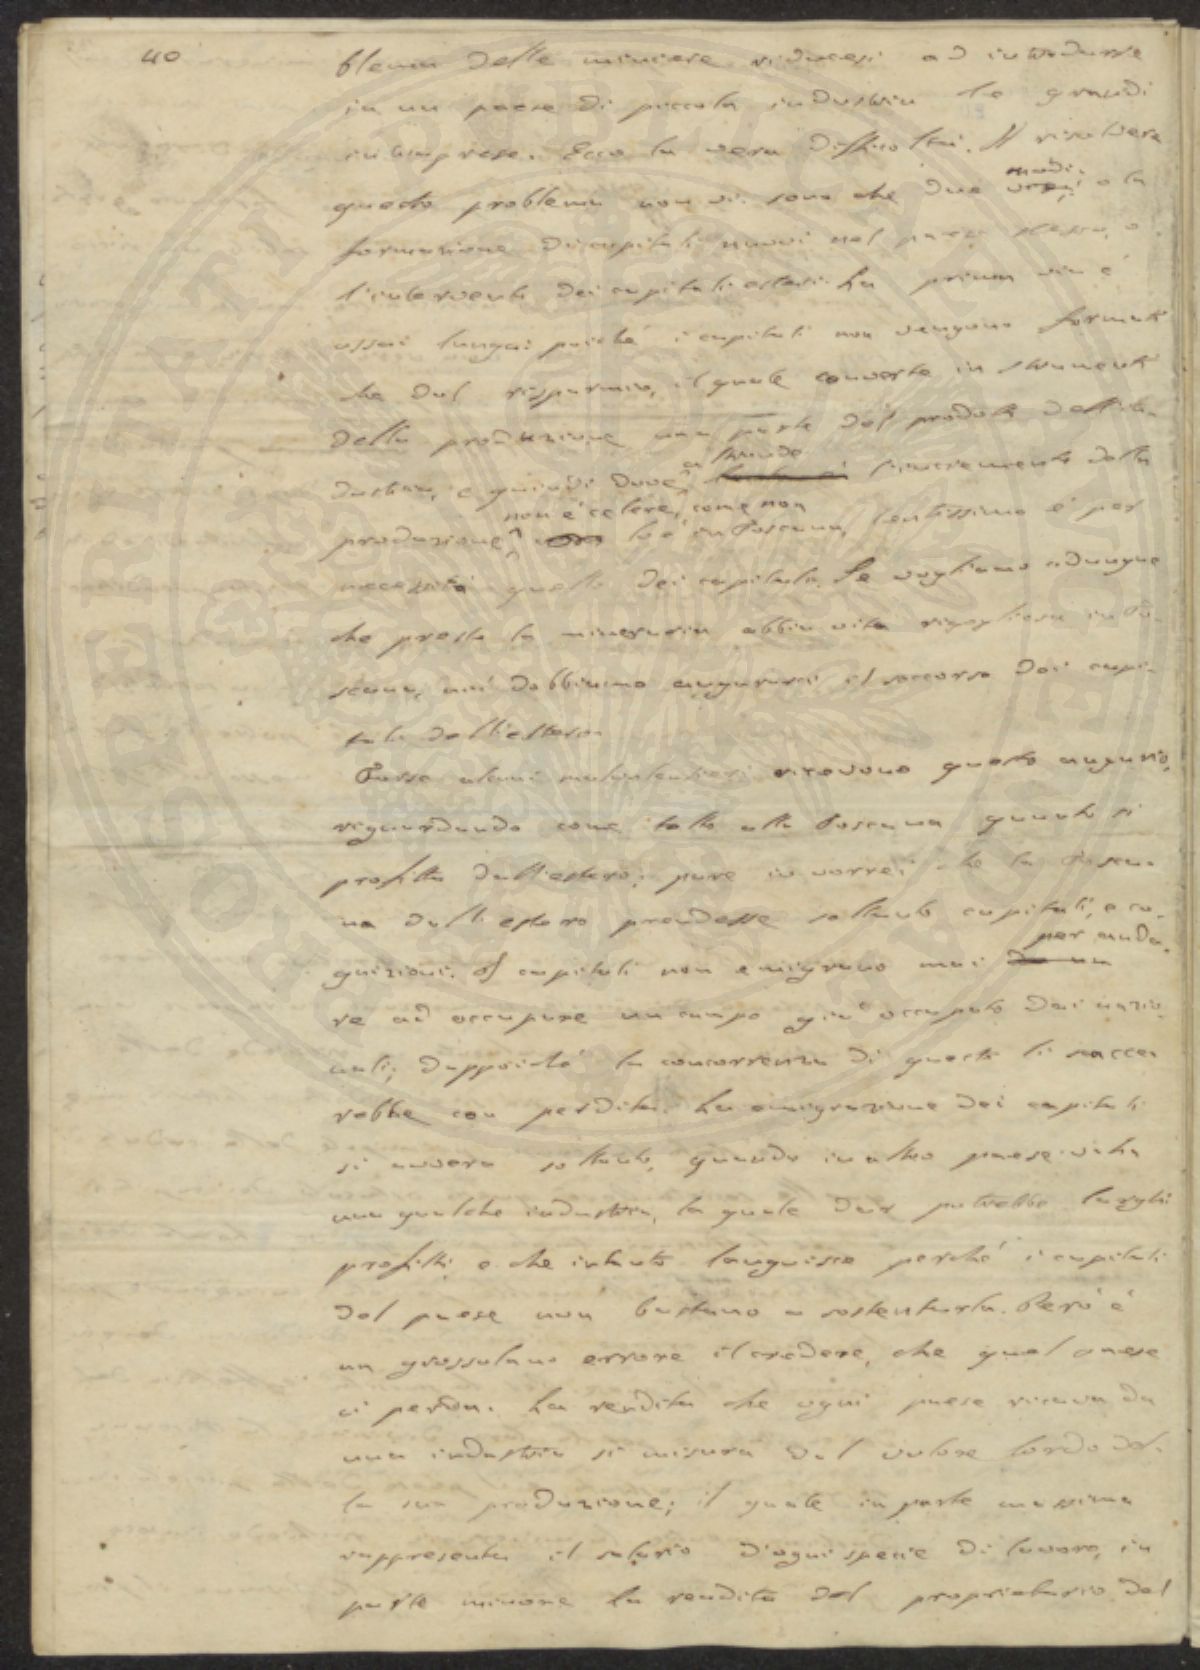 40
blema delle miniere riducesi ad introdurre
in un paese di piccola industria le grandi
intraprese. Ecco la vera difficoltà. A risolvere
questo problema non vi sono che due modi: o la
formazione di capitali nuovi nel paese stesso, o
l'intervento dei capitali esteri. La prima via è
assai lunga; poiché i capitali non vengono formati
che dal risparmio, il quale converte in strumenti
della produzione una parte dei prodotti dell'in-
dustria, e quindi dove l'incremento della
produzione non è celere, come non lo è in Toscana, lentissimo è per
necessità quello dei capitali. Se vogliamo adunque
che presto la mineraria abbia vita rigogliosa in To-
scana, noi dobbiamo augurarci il soccorso dei capi-
tali dell'estero.
Forse alcuni malvolentieri ricevono questo augurio,
riguardando come tolto alla Toscana quanto si
profitta dall'estero; pure io vorrei che la Tosca-
na dall'estero prendesse soltanto capitali, e co-
gnizioni. I capitali non emigrano mai per anda-
re ad occupare un campo già occupato dai nazio-
nali; dappoiché la concorrenza di questi li scacce-
rebbe con perdita. La emigrazione dei capitali
si avvera soltanto, quando in altro paese vi ha
una qualche industria, la quale dar potrebbe larghi
profitti, e che intanto languisce perché i capitali
del paese non bastano a sostentarla. Però è
un grossolano errore il credere, che quel paese
ci perda. La rendita che ogni paese ricava da
una industria si misura dal valore lordo del-
la sua produzione; il quale in parte massima
rappresenta il salario d'ogni specie di lavoro, in
parte minore la rendita del proprietario del